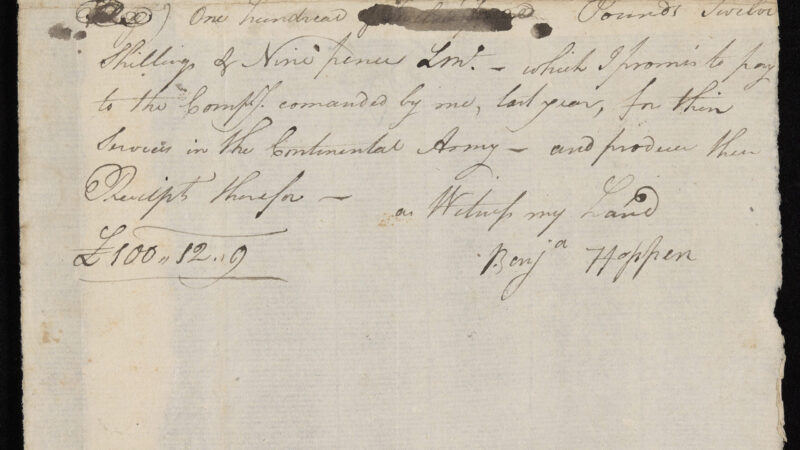 One hundred Pounds Twelve
Shilling & Nine pence Lmy. – which I promis to pay
to the Compy. comanded by me, last year, for their
Services in the Continental Army – and produce their
Receipt therefor – as Witness my Hand
£100,,12,,9
Benja Hoppen